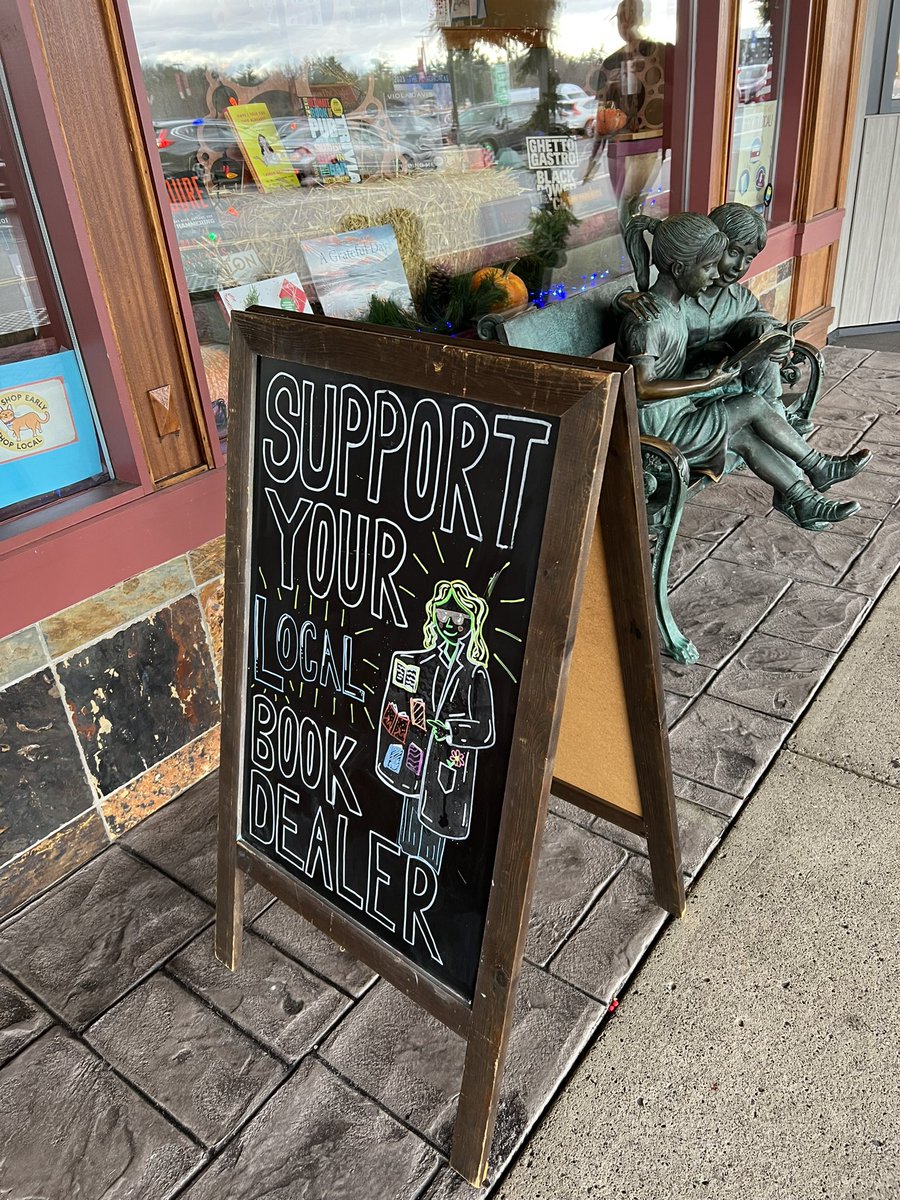 SUPPORT
YOUR
LOCAL
BOOK
DEALER
A Grateful Day
GHETTO
GASTRO
BLACK
POWER
SHOP EARLY
SHOP LOCAL